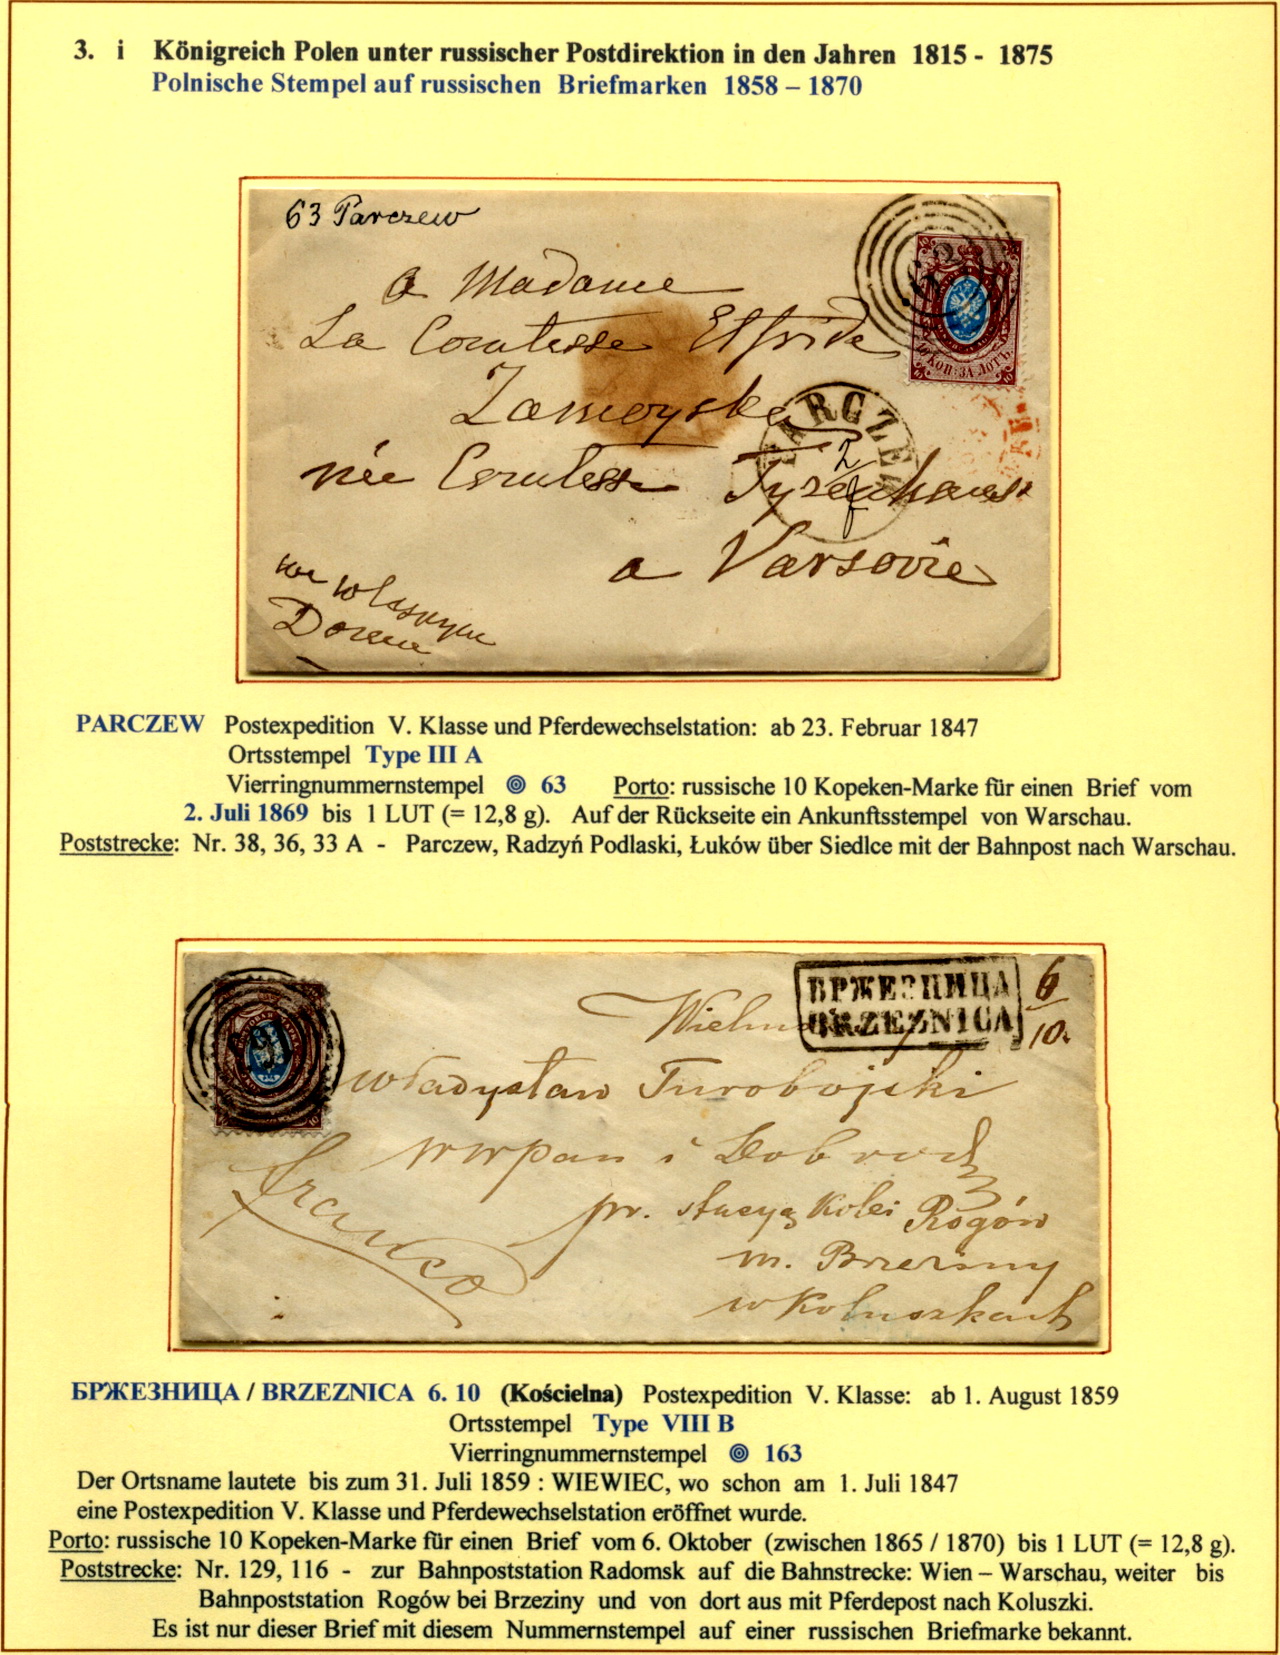 3. i Königreich Polen unter russischer Postdirektion in den Jahren 1815 - 1875
Polnische Stempel auf russischen Briefmarken 1858 – 1870
63 Parczew
a Madame
La Comtesse Elfride
Zamoyska
née Comtesse
a Varsovie
we własnym
Domu
PARCZE
2
10 КОП: ЗА ЛОТЪ
PARCZEW Postexpedition V. Klasse und Pferdewechselstation: ab 23. Februar 1847
Ortsstempel Type III A
Vierringnummernstempel 63 Porto: russische 10 Kopeken-Marke für einen Brief vom
2. Juli 1869 bis 1 LUT (= 12,8 g). Auf der Rückseite ein Ankunftsstempel von Warschau.
Poststrecke: Nr. 38, 36, 33 A - Parczew, Radzyń Podlaski, Łuków über Siedlce mit der Bahnpost nach Warschau.
БРЖЕЗНИЦА
BRZEZNICA
6
10.
Władysław Turobojski
WWPan i Dobrodz
Franco
pr. stacyą Kolei Rogów
m. Brzeziny
w Koluszkach
БРЖЕЗНИЦА / BRZEZNICA 6. 10 (Kościelna) Postexpedition V. Klasse: ab 1. August 1859
Ortsstempel Type VIII B
Vierringnummernstempel 163
Der Ortsname lautete bis zum 31. Juli 1859 : WIEWIEC, wo schon am 1. Juli 1847
eine Postexpedition V. Klasse und Pferdewechselstation eröffnet wurde.
Porto: russische 10 Kopeken-Marke für einen Brief vom 6. Oktober (zwischen 1865 / 1870) bis 1 LUT (= 12,8 g).
Poststrecke: Nr. 129, 116 - zur Bahnpoststation Radomsk auf die Bahnstrecke: Wien – Warschau, weiter bis
Bahnpoststation Rogów bei Brzeziny und von dort aus mit Pferdepost nach Koluszki.
Es ist nur dieser Brief mit diesem Nummernstempel auf einer russischen Briefmarke bekannt.